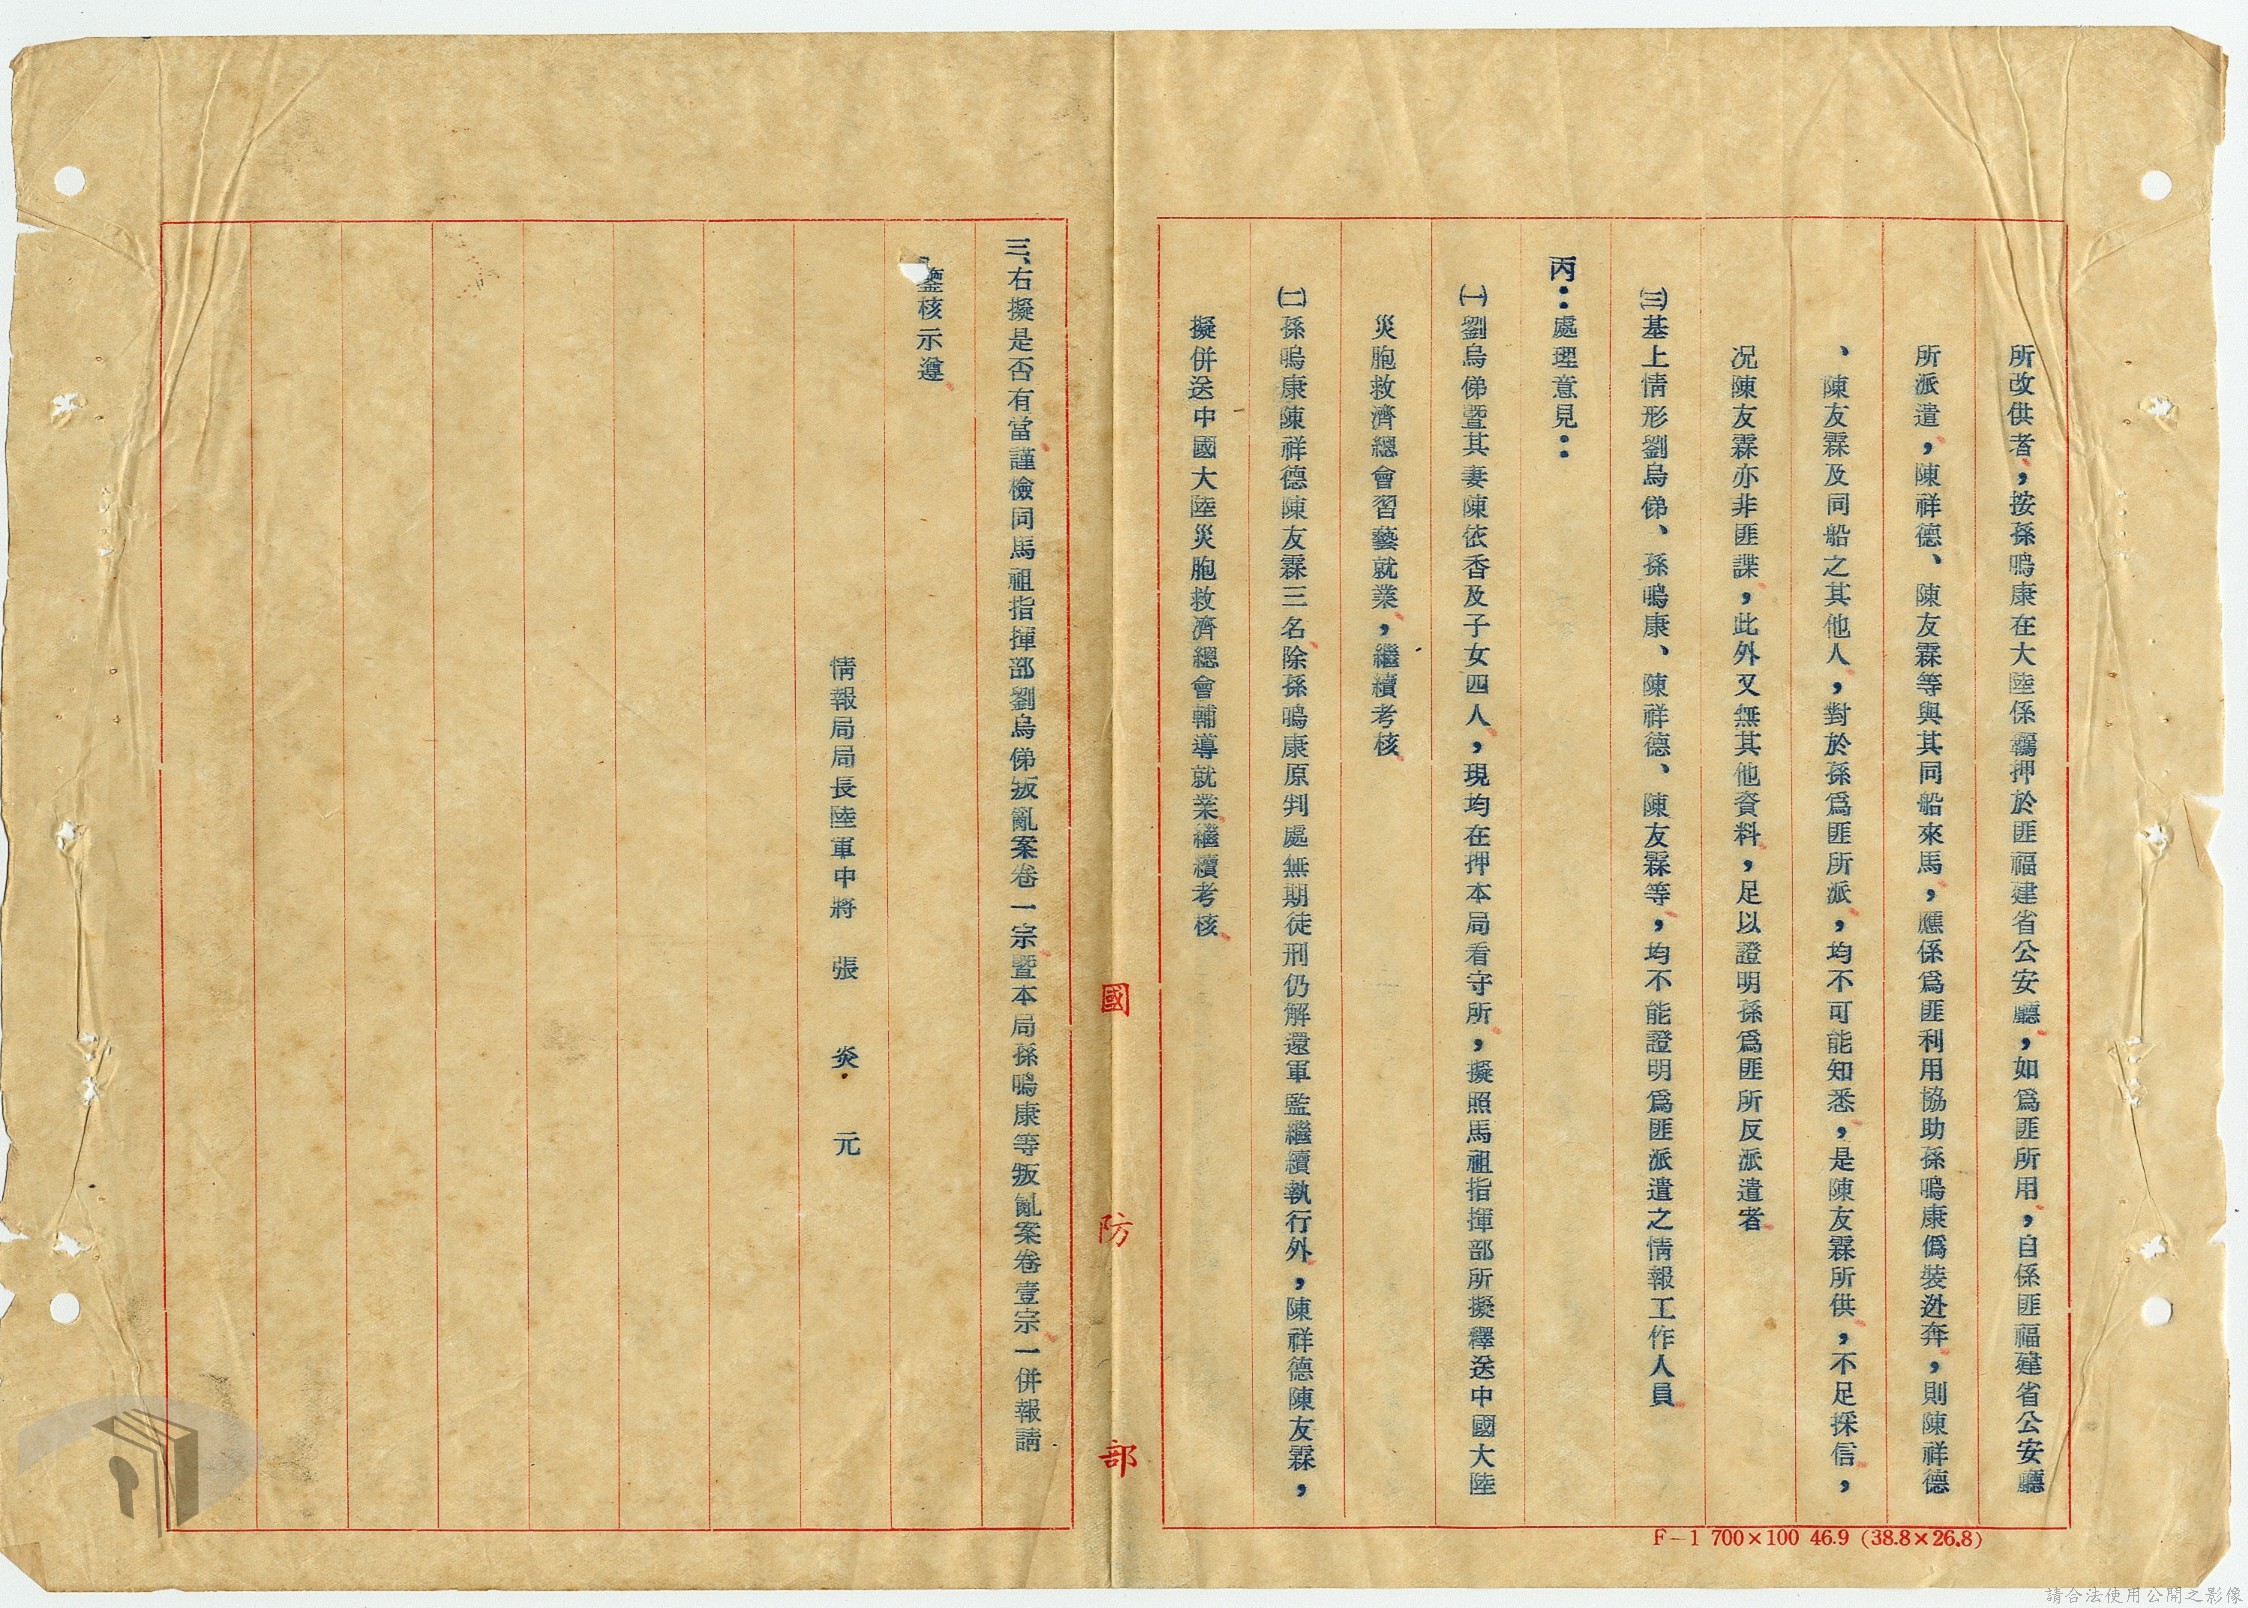 所改供者，按孫鳴康在大陸係羈押於匪福建省公安廳，如爲匪所用，自係匪福建省公安廳
所派遣，陳祥德、陳友霖等與其同船來馬，應係爲匪利用協助孫鳴康僞裝逃奔，則陳祥德
、陳友霖及同船之其他人，對於孫爲匪所派，均不可能知悉，是陳友霖所供，不足採信，
况陳友霖亦非匪諜，此外又無其他資料，足以證明孫爲匪所反派遣者
㈢基上情形劉烏俤、孫鳴康、陳祥德、陳友霖等，均不能證明爲匪派遣之情報工作人員
丙：處理意見：
㈠劉烏俤暨其妻陳依香及子女四人，現均在押本局看守所，擬照馬祖指揮部所擬釋送中國大陸
災胞救濟總會習藝就業，繼續考核
㈡孫鳴康陳祥德陳友霖三名除孫鳴康原判處無期徒刑仍解還軍監繼續執行外，陳祥德陳友霖，
擬併送中國大陸災胞救濟總會輔導就業繼續考核
國防部
三、右擬是否有當謹檢同馬祖指揮部劉烏俤叛亂案卷一宗暨本局孫鳴康等叛亂案卷壹宗一併報請
鑒核示遵
情報局局長陸軍中將 張 炎 元
F－1 700×100 46.9 (38.8×26.8)
請合法使用公開之影像